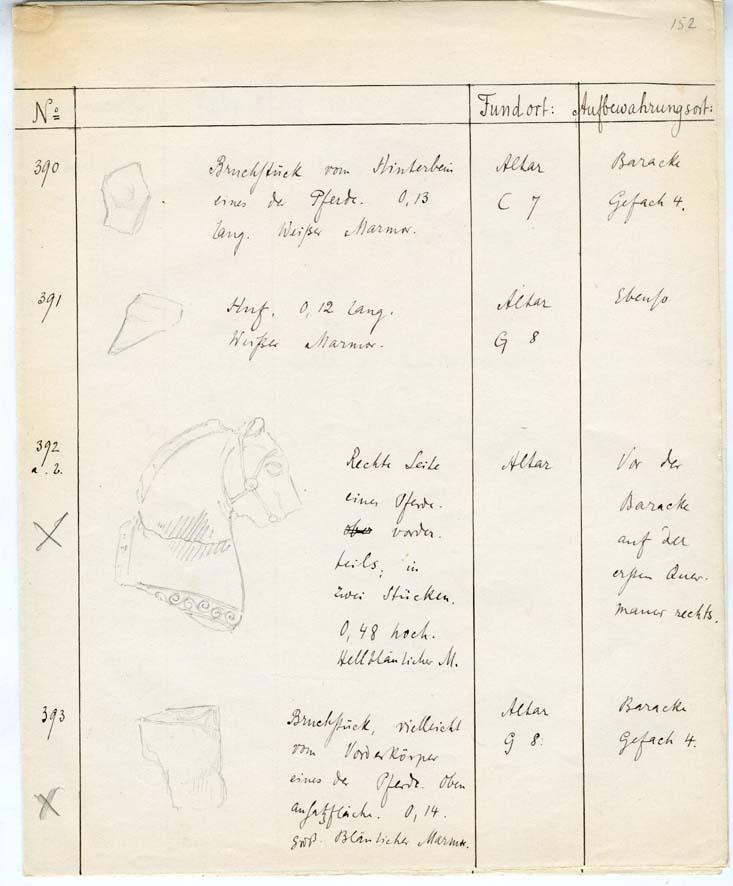 152
No Fundort: Aufbewahrungsort:
390 Bruchstück vom Hinterbein Altar Baracke
eines der Pferde. 0,13 C 7 Gefach 4.
lang. Weißer Marmor.
391 Huf. 0,12 lang. Altar Ebenso
Weißer Marmor. G 8
392 Rechte Seite Altar Vor der
a. b. eines Pferde- Baracke
vorder- auf der
teils, in ersten Quer-
zwei Stücken. mauer rechts.
0,48 hoch.
Hellbläulicher M.
393 Bruchstück, vielleicht Altar Baracke
vom Vorderkörper G 8. Gefach 4.
eines der Pferde. Oben
ansatzfläche. 0,14.
groß. Bläulicher Marmor.